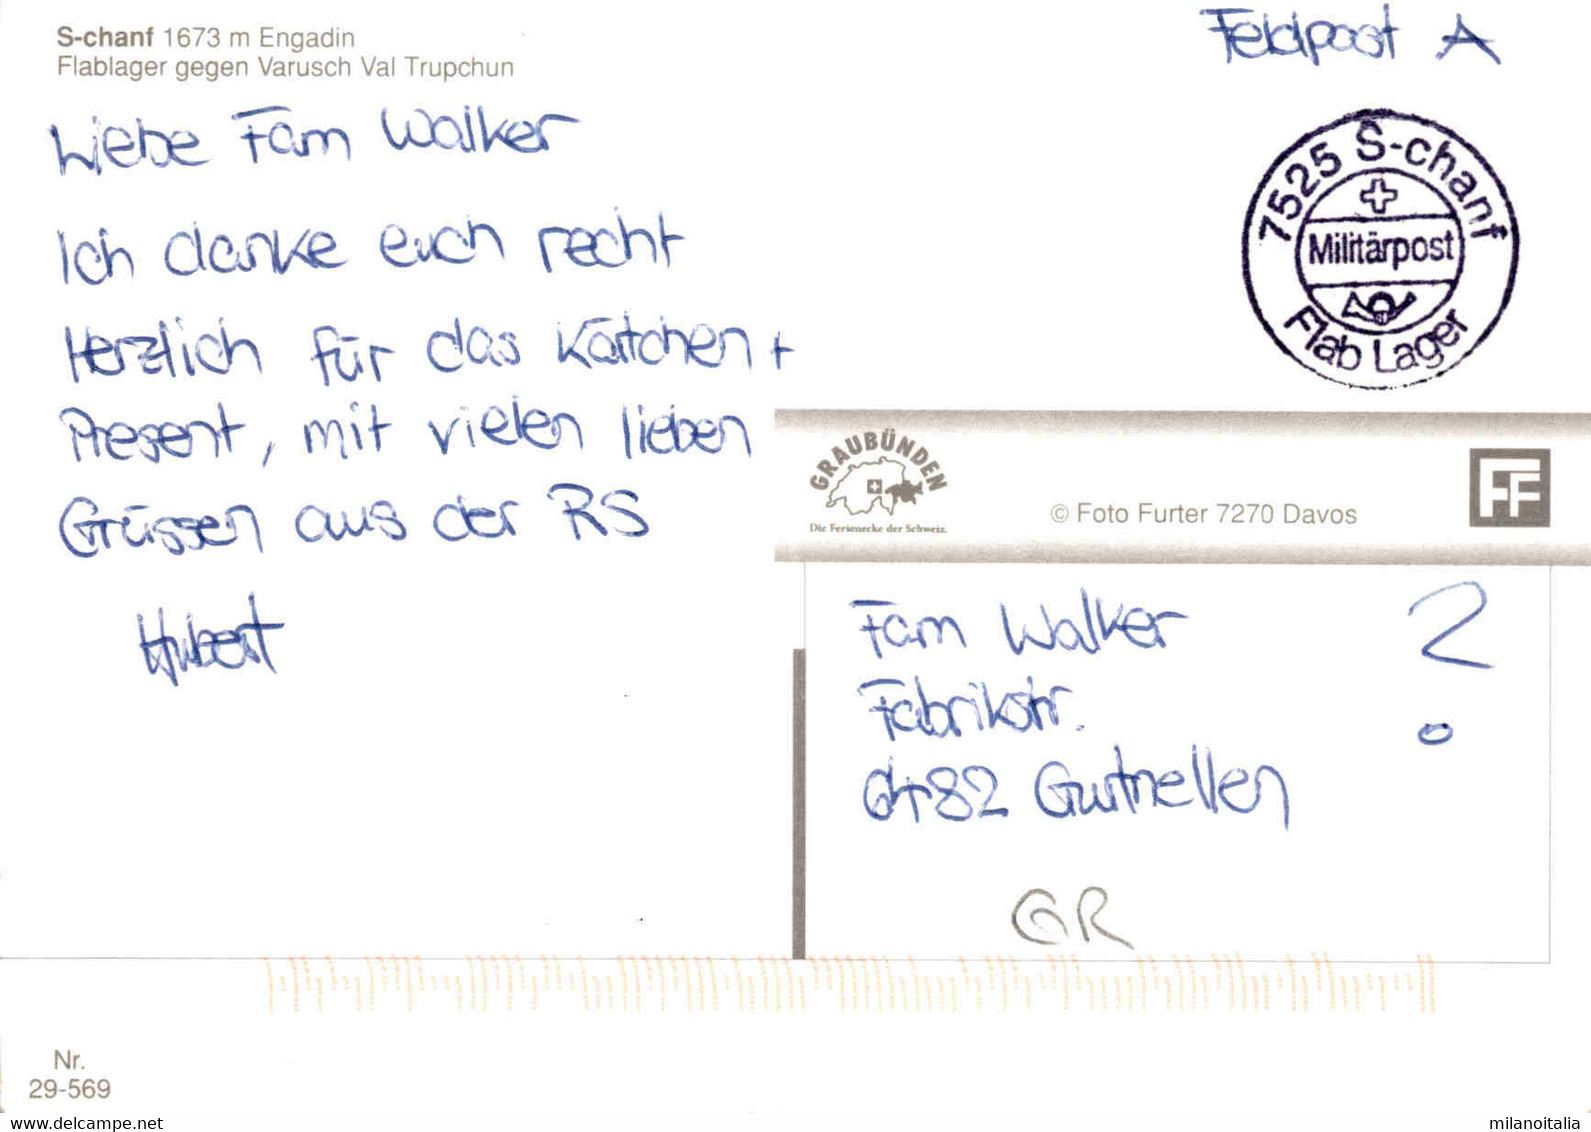 S-chanf 1673 m Engadin
Flablager gegen Varusch Val Trupchun
Feldpost A
Liebe Fam Walker
Ich danke euch recht
Herzlich für das Kärtchen +
Present, mit vielen lieben
Grüssen aus der RS
Hubert
7525 S-chanf
Militärpost
Flab Lager
GRAUBÜNDEN
Die Ferienecke der Schweiz.
© Foto Furter 7270 Davos
FF
Fam Walker
Fabrikstr.
6482 Gurtnellen
?
GR
Nr.
29-569
www.delcampe.net
milanoitalia